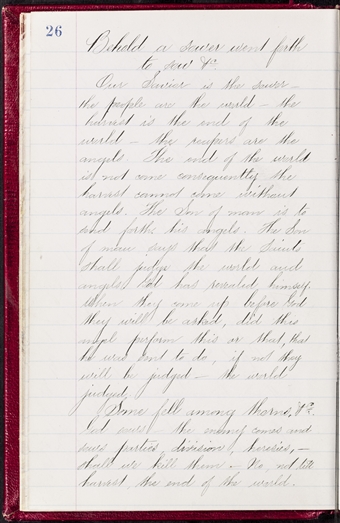 26
Behold a sower went forth
to sow &c.
Our Savior is the sower —
the people are the world — the
harvest is the end of the
world — the reapers are the
angels. The end of the world
is not come consequently the
harvest cannot come without
angels. The Son of man is to
send forth his angels. The Son
of man says that the Saints
shall judge the world and
angels. God has revealed himself.
When they come up before God
they will be asked, did this
angel perform this or that, that
he was sent to do, if not they
will be judged — the world
judged.
Some fell among thorns, &c.
God sows — the enemy comes and
sows parties, division, heresies, —
shall we kill them — No, not till
harvest, the end of the world.